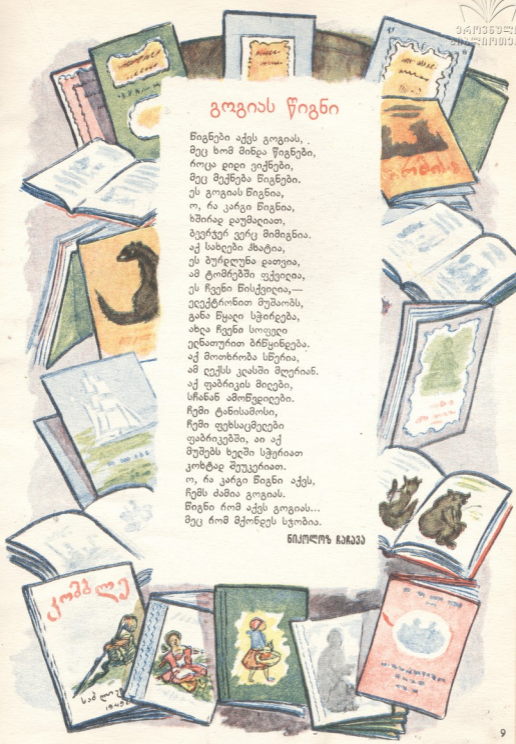 გოგიას წიგნი
წიგნები აქვს გოგიას,
მეც ხომ მინდა წიგნები,
როცა დიდი ვიქნები,
მეც მექნება წიგნები.
ეს გოგიას წიგნია,
ო, რა კარგი წიგნია,
ხშირად დაუმალიათ,
ბევრჯერ ვერც მიმიგნია.
აქ სახლები ჰხატია,
ეს ბურდღუნა დათვია,
ამ ტომრებში ფქვილია,
ეს ჩვენი წისქვილია,—
ელექტრონით მუშაობს,
განა წყალი სჭირდება,
ახლა ჩვენი სოფელი
ელნათურით ბრწყინდება.
აქ მოთხრობა სწერია,
ამ ლექსს კლასში მღერიან.
აქ ფაბრიკის მილები,
სჩანან ამოწვდილები.
ჩემი ტანისამოსი,
ჩემი ფეხსაცმელები
ფაბრიკებში, აი აქ
მუშებს ხელში სჭერიათ
კოხტად შეუკერიათ.
ო, რა კარგი წიგნი აქვს,
ჩემს ძამია გოგიას.
წიგნი რომ აქვს გოგიას...
მეც რომ მქონდეს სჯობია.
ნიკოლოზ ჩაჩავა
კომბლე
9